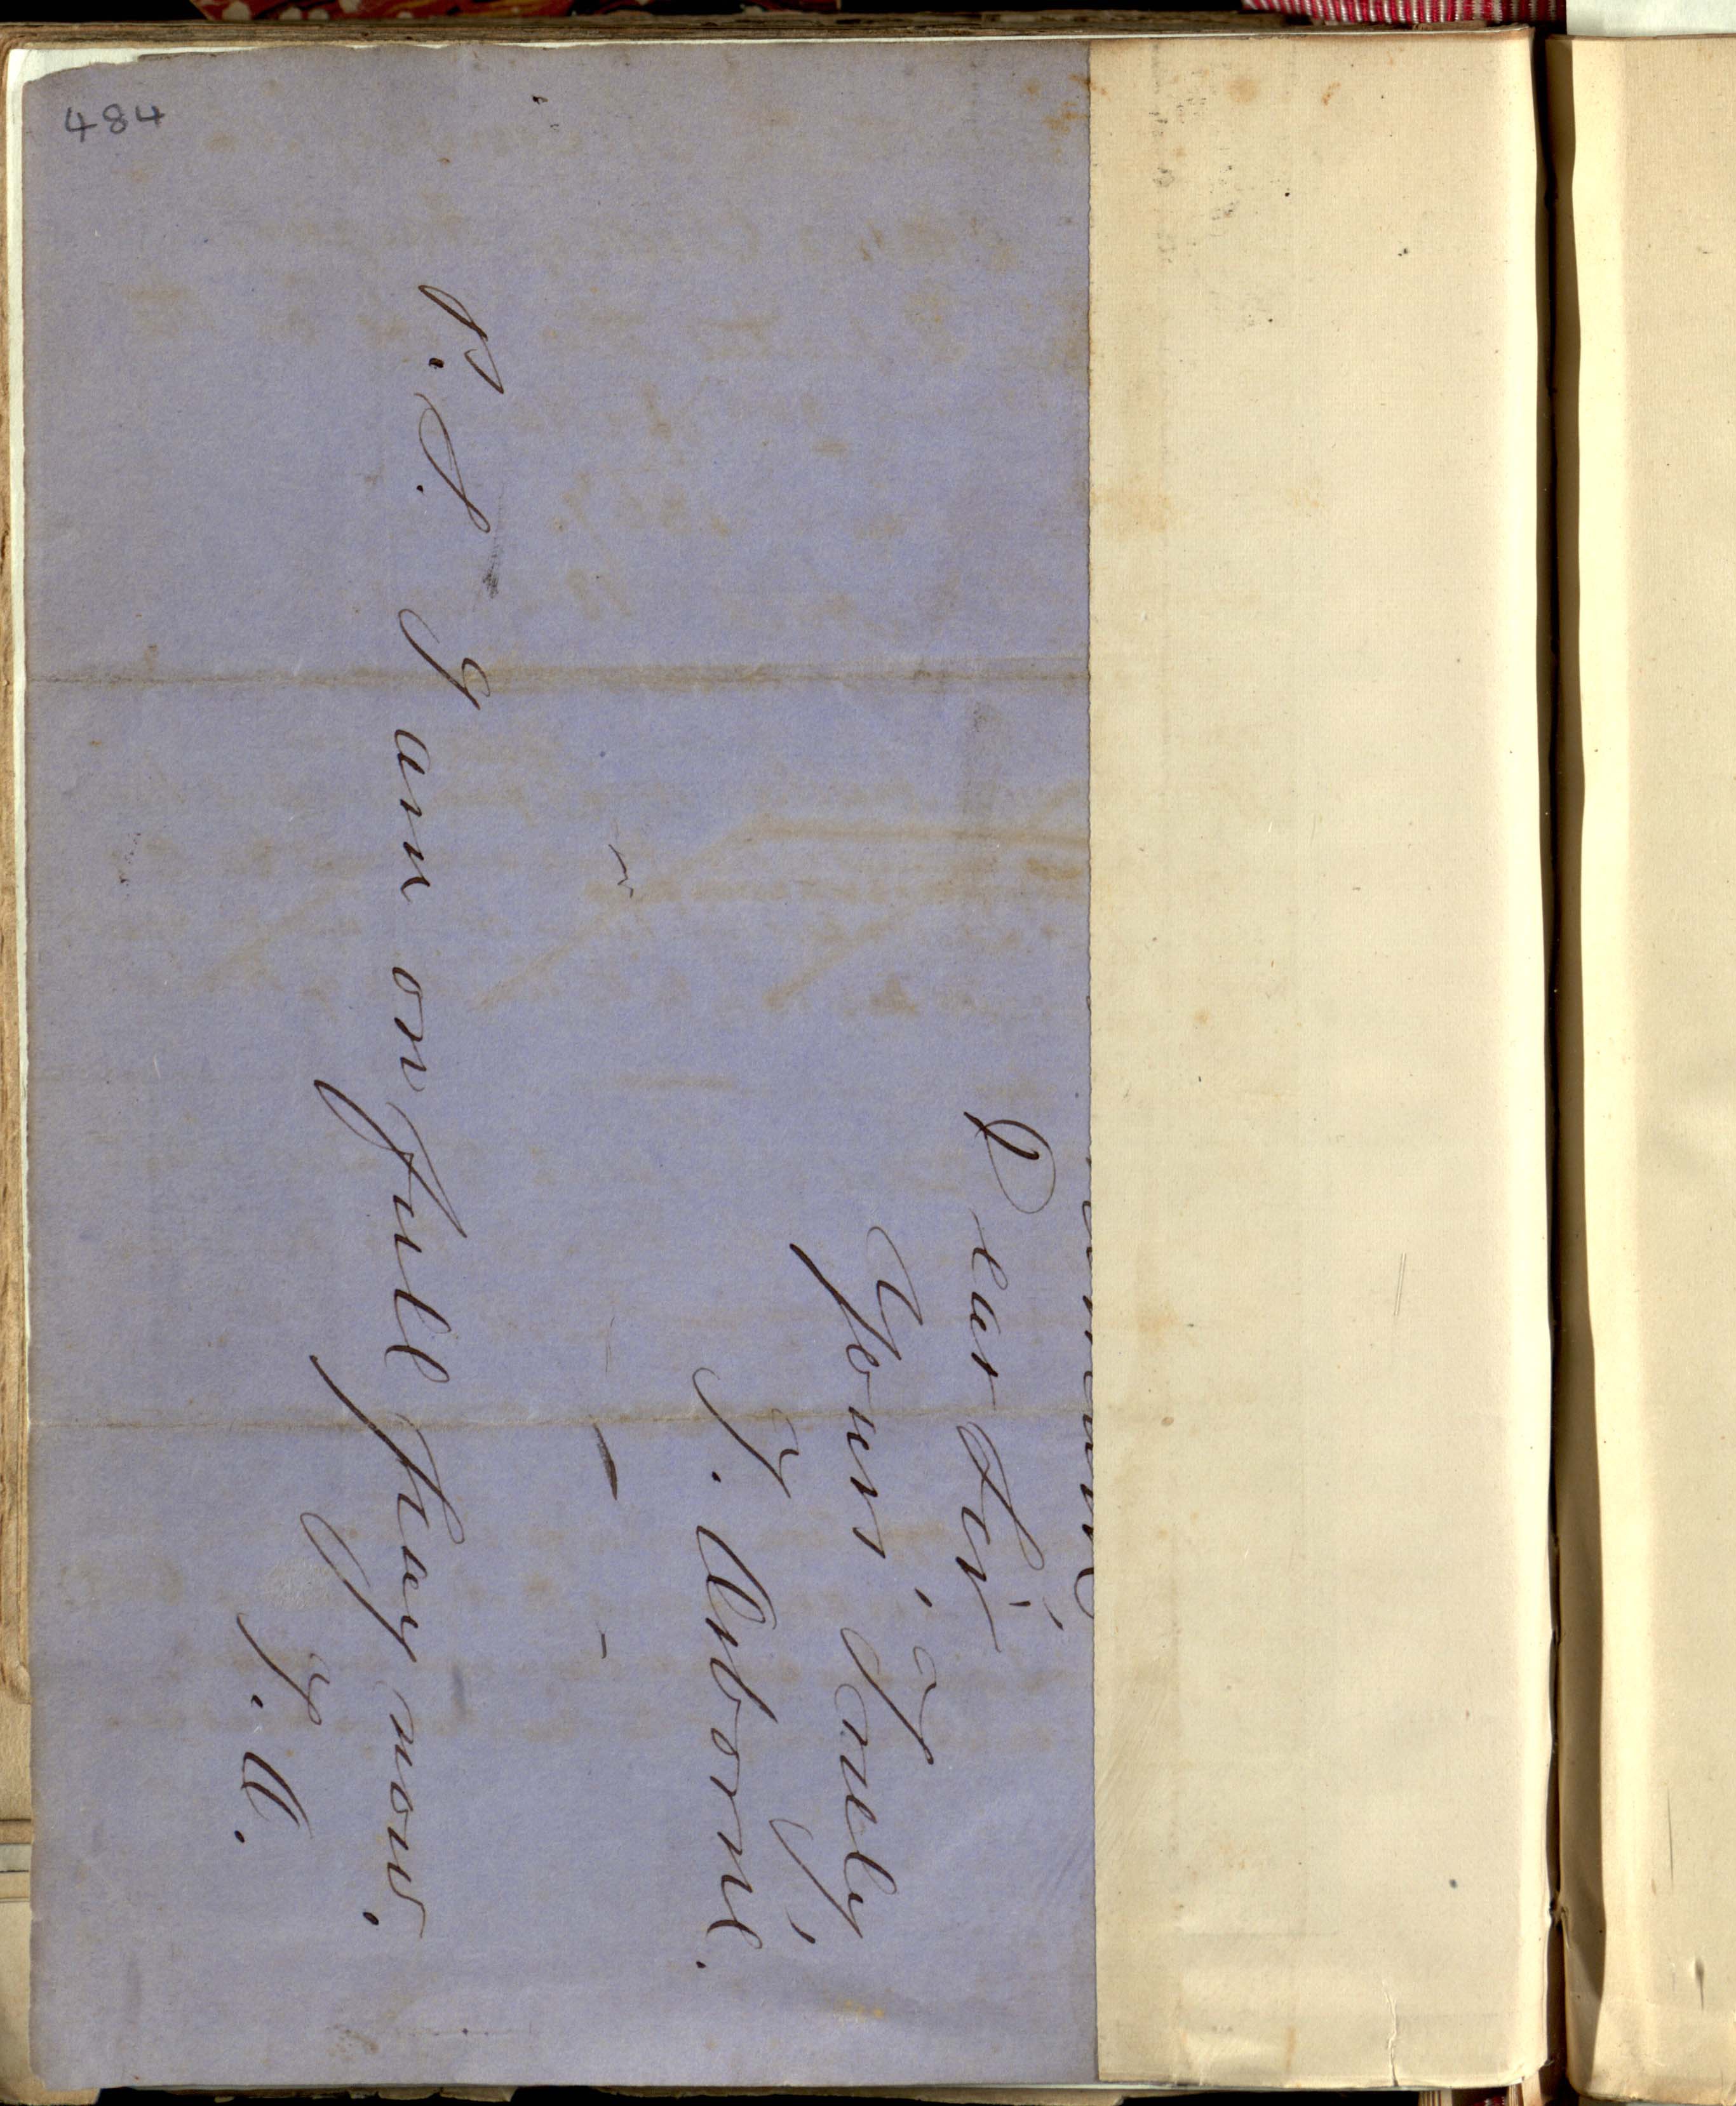 484
Dear Sir,
Yours, Truly,
J. Osborne.
P.S. I am on full pay now.
J.O.